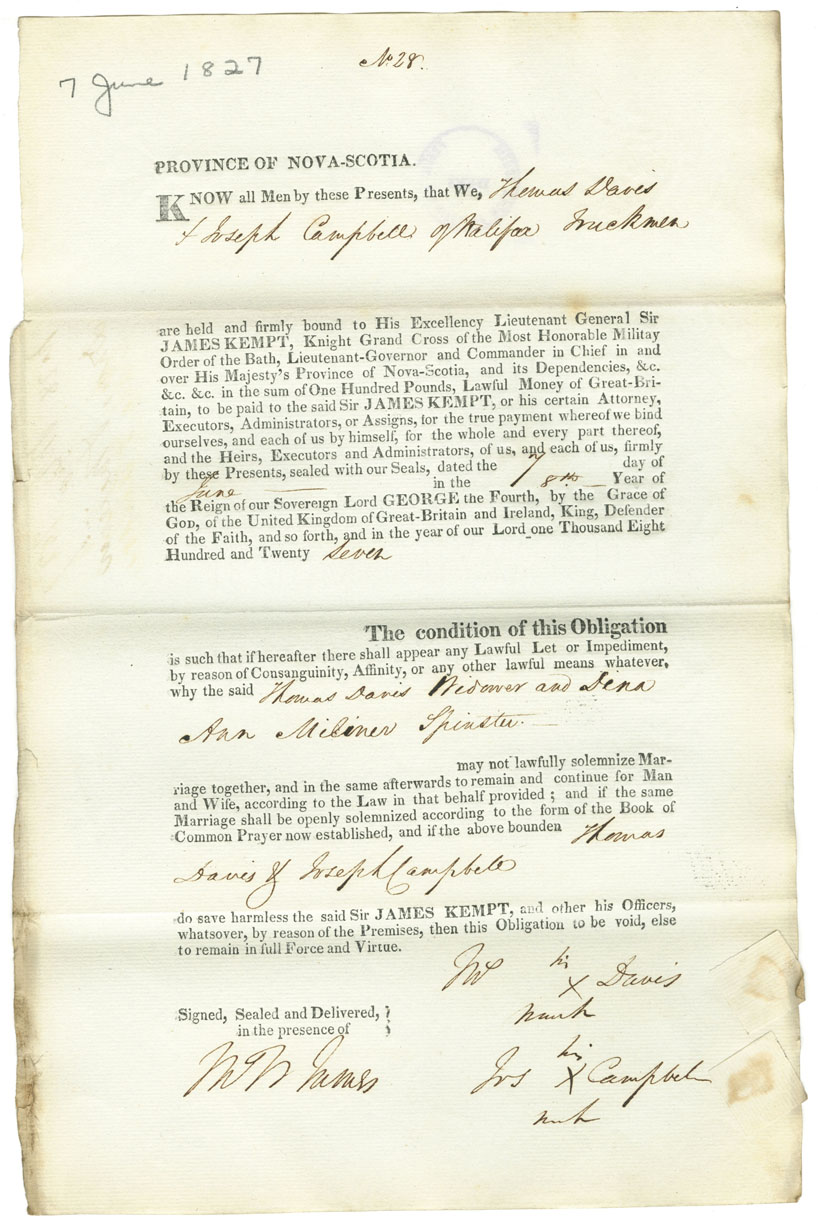 7 June 1827
No 28.
PROVINCE OF NOVA-SCOTIA.
KNOW all Men by these Presents, that We, Thomas Davis
& Joseph Campbell of Halifax Truckmen
are held and firmly bound to His Excellency Lieutenant General Sir
JAMES KEMPT, Knight Grand Cross of the Most Honorable Militay
Order of the Bath, Lieutenant-Governor and Commander in Chief in and
over His Majesty's Province of Nova-Scotia, and its Dependencies, &c.
&c. &c. in the sum of One Hundred Pounds, Lawful Money of Great-Bri-
tain, to be paid to the said Sir JAMES KEMPT, or his certain Attorney,
Executors, Administrators, or Assigns, for the true payment whereof we bind
ourselves, and each of us by himself, for the whole and every part thereof,
and the Heirs, Executors and Administrators, of us, and each of us, firmly
by these Presents, sealed with our Seals, dated the 7 day of
June in the 8th Year of
the Reign of our Sovereign Lord GEORGE the Fourth, by the Grace of
GOD, of the United Kingdom of Great-Britain and Ireland, King, Defender
of the Faith, and so forth, and in the year of our Lord one Thousand Eight
Hundred and Twenty Seven
The condition of this Obligation
is such that if hereafter there shall appear any Lawful Let or Impediment,
by reason of Consanguinity, Affinity, or any other lawful means whatever,
why the said Thomas Davis Widower and Dena
Ann Miliner Spinster.
may not lawfully solemnize Mar-
riage together, and in the same afterwards to remain and continue for Man
and Wife, according to the Law in that behalf provided ; and if the same
Marriage shall be openly solemnized according to the form of the Book of
Common Prayer now established, and if the above bounden Thomas
Davis & Joseph Campbell
do save harmless the said Sir JAMES KEMPT, and other his Officers,
whatsover, by reason of the Premises, then this Obligation to be void, else
to remain in full Force and Virtue.
his
X Davis
mark
Signed, Sealed and Delivered,
in the presence of
his
Jos X Campbel
mark